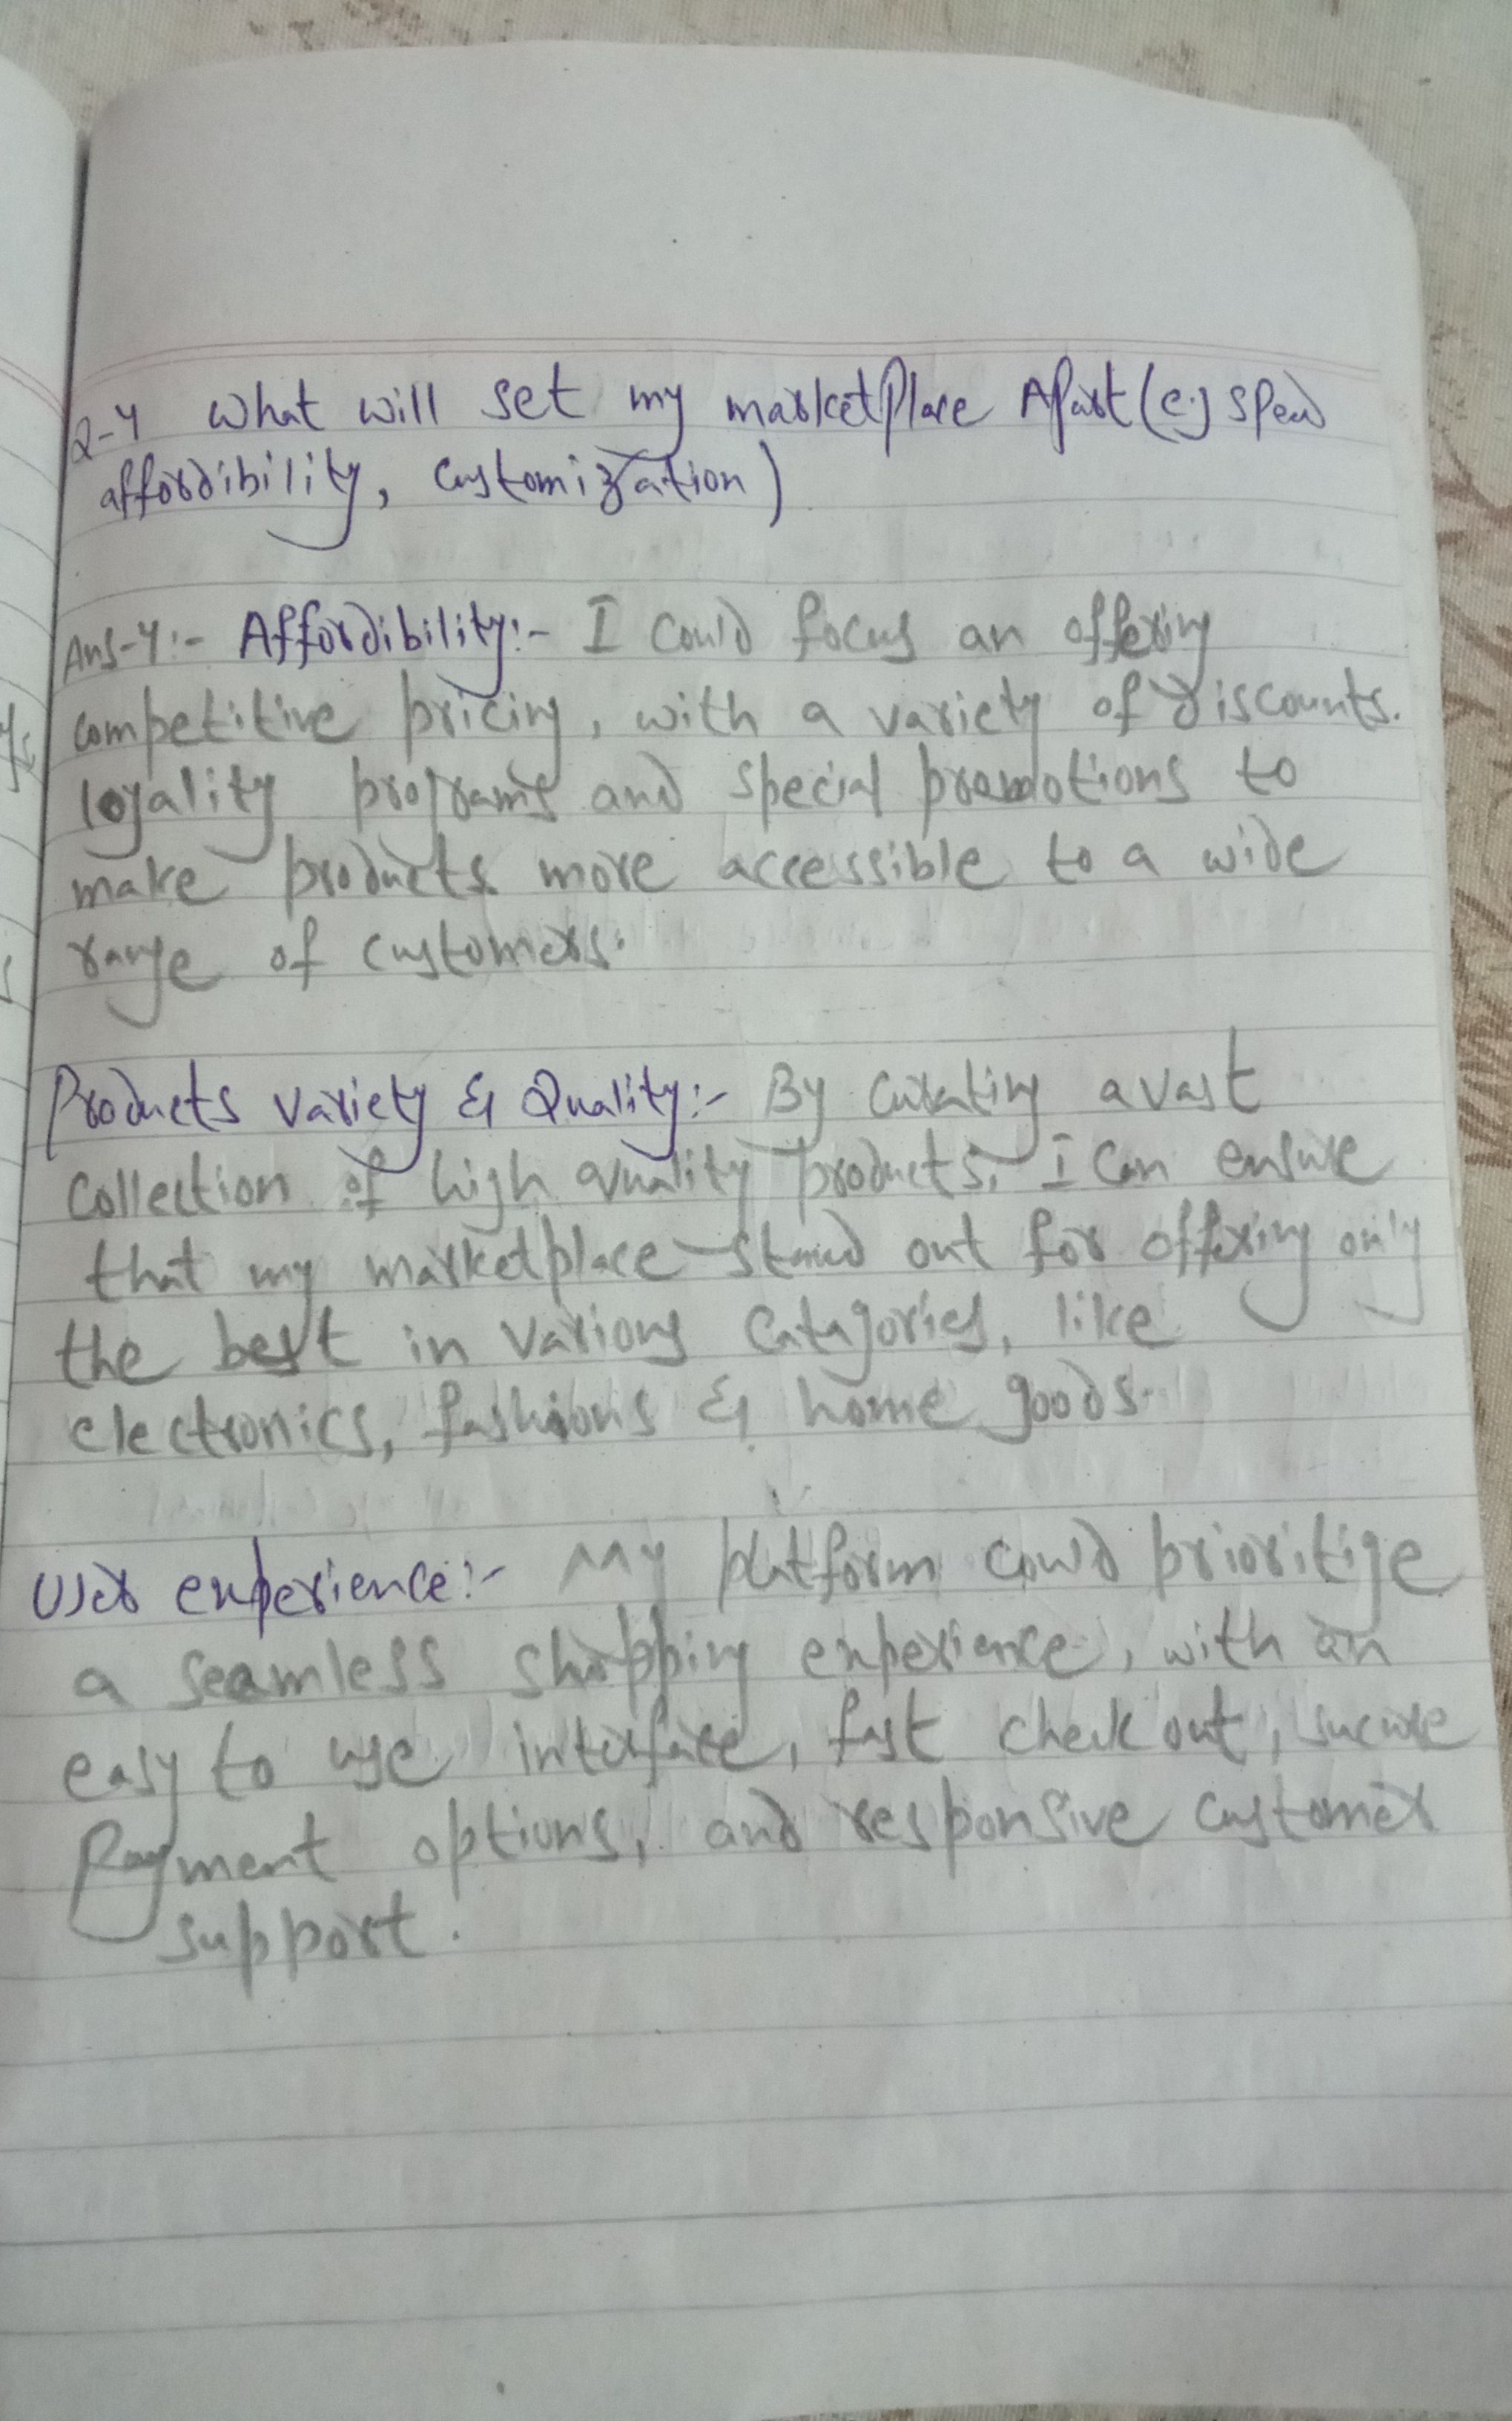 Q-4 What will set my marketplace Apart (e.g speed
affordibility, Customization)
Ans-4:- Affordibility:- I could focus an offering
competitive pricing, with a variety of discounts.
loyality programs and special promotions to
make products more accessible to a wide
range of customers.
Products variety & Quality:- By curating a vast
collection of high quality products, I can ensure
that my marketplace stand out for offering only
the best in various catagories, like
electronics, fashions & home goods.
User experience:- My platform could prioritige
a seamless shopping experience, with an
easy to use interface, fast check out, sucure
Payment options, and responsive customer
support.